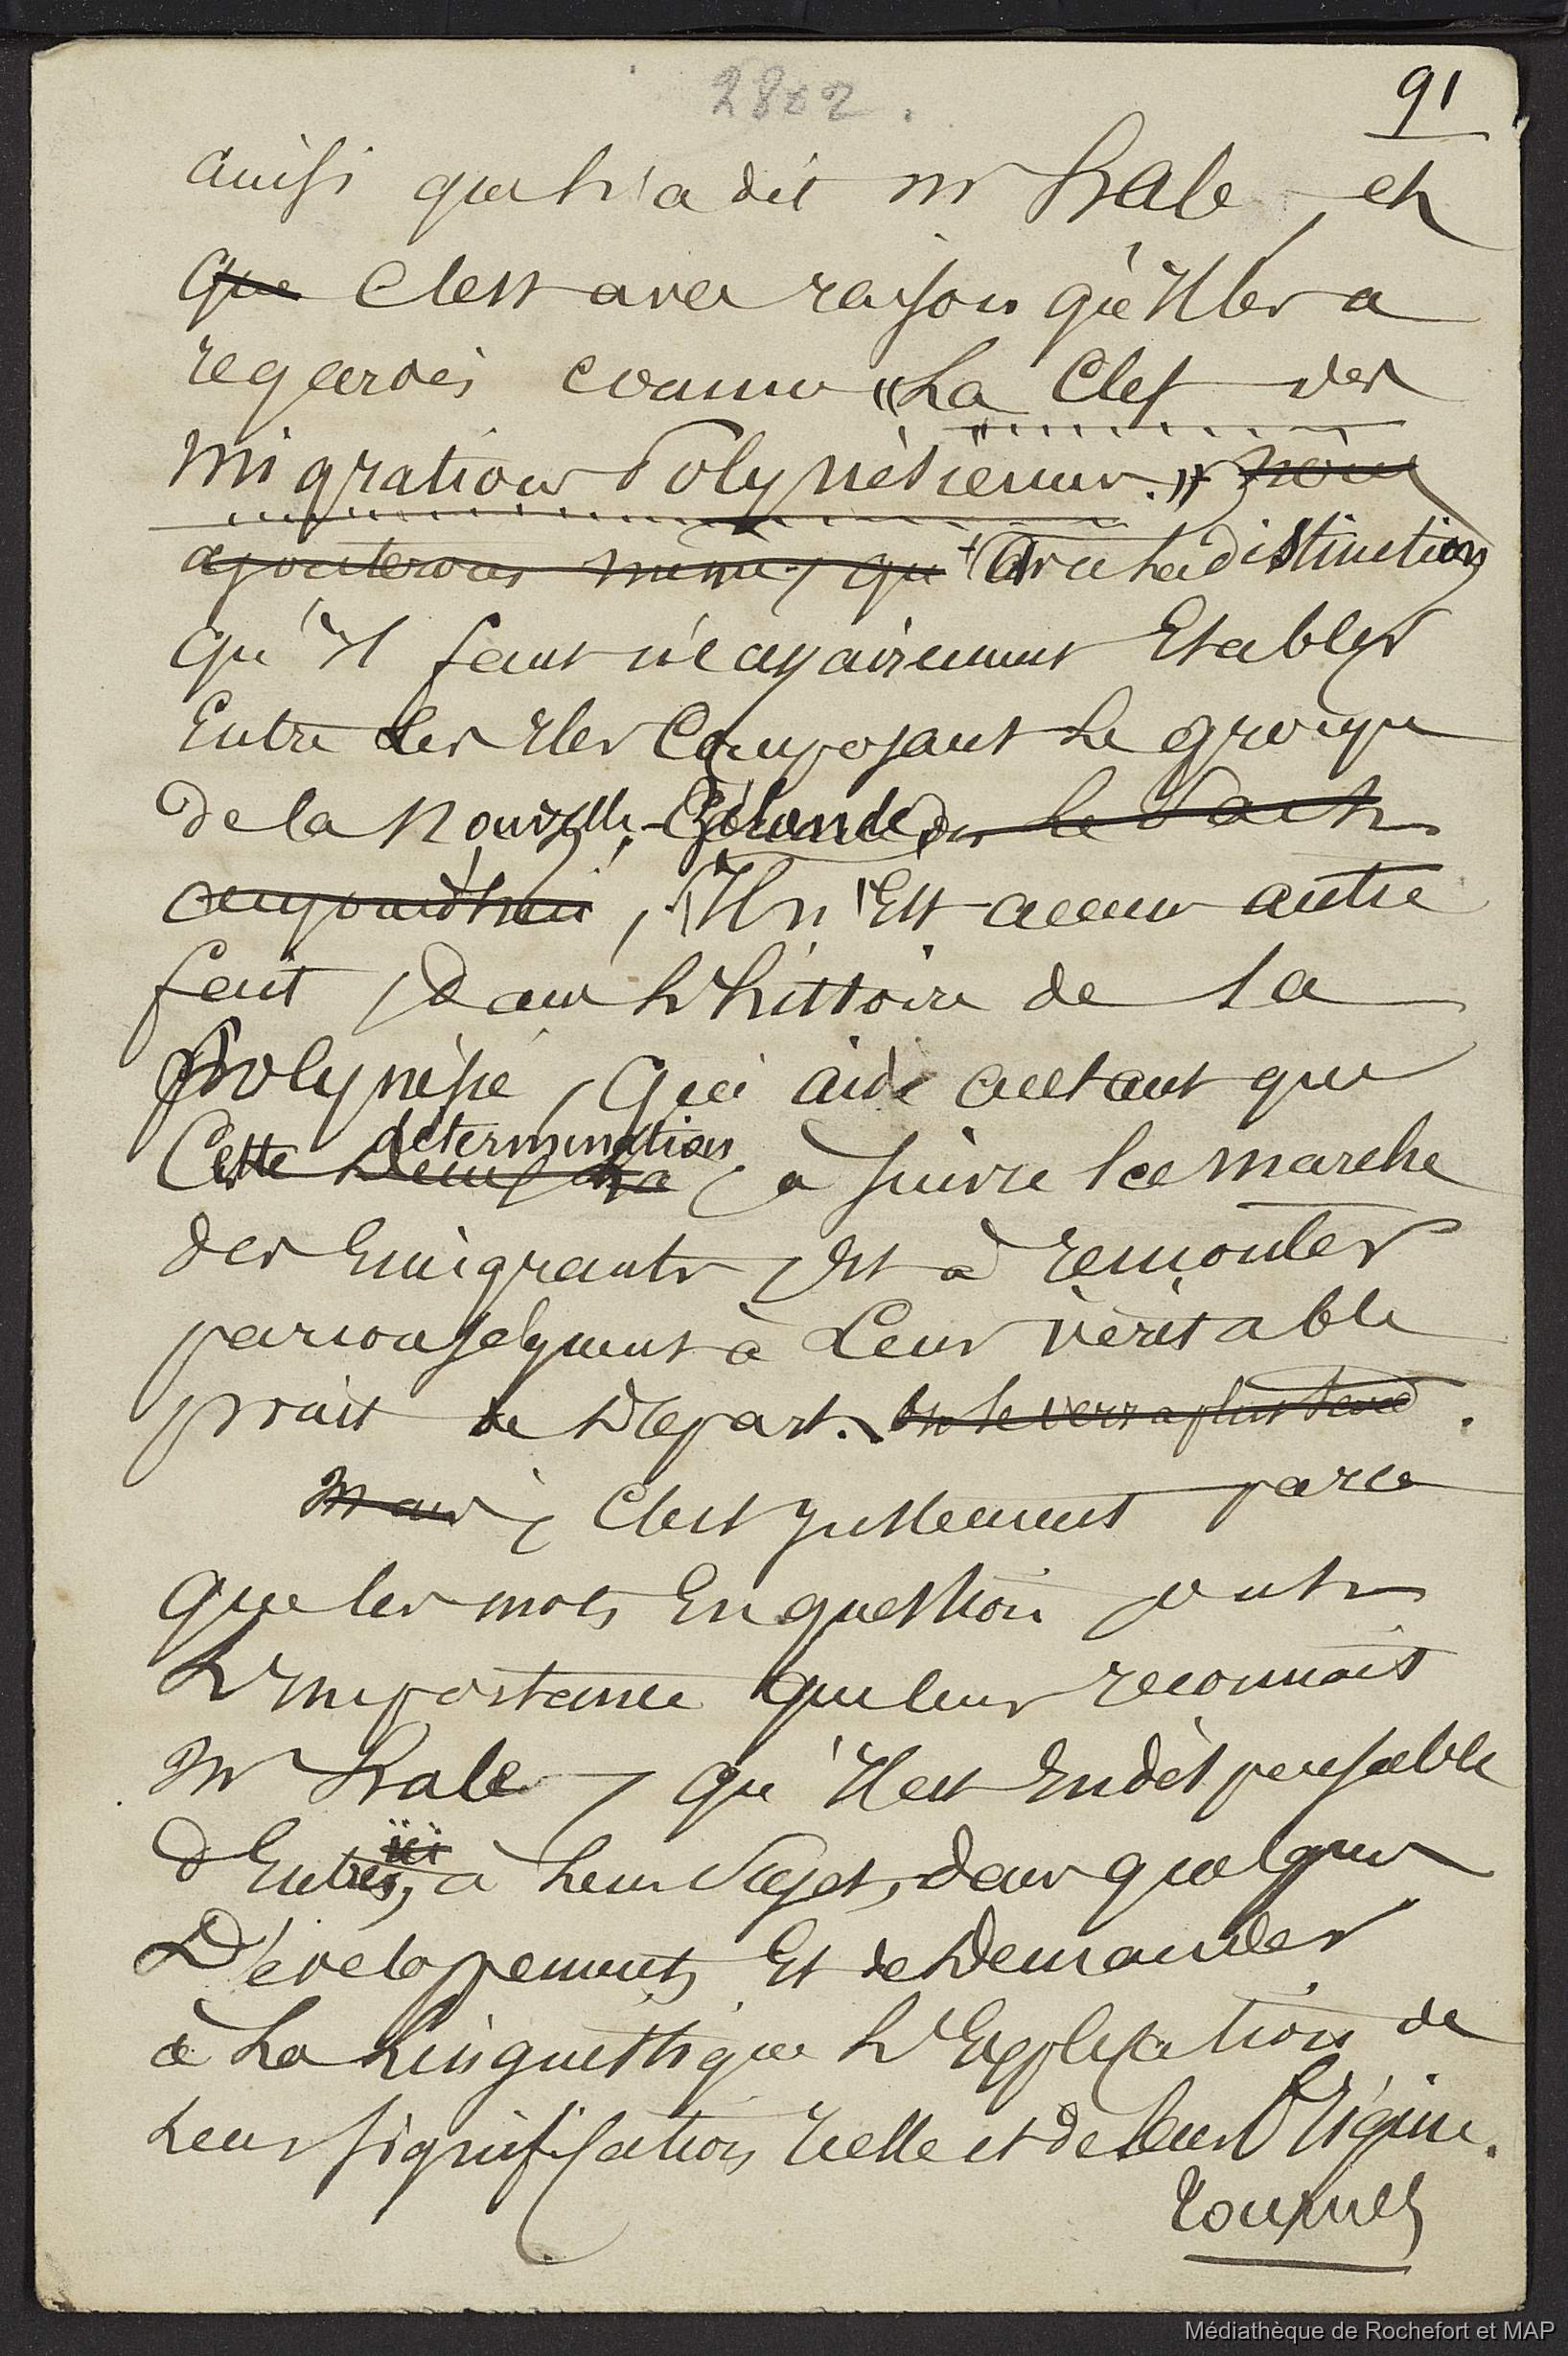 2802.
91
ainsi que l'a dit Mr Hale, et
que C'est avec raison qu'Il les a
regardés comme "La Clef des
Migrations Polynésiennes." nous
ajouterons même, que + distinction
qu'Il faut nécessairement Etablir
Entre les Iles Composant Le groupe
de la Nouvelle-Zélande, le
aujourd'hui, Il n'Est aucun autre
fait, dans L'histoire de la
Polynésie, Qui aide autant que
determination
Cette à suivre la marche
des Emigrants, Et à remonter
par conséquent à Leur véritable
point de Départ. On le verra plus tard.
Mais, C'est Justement parce
que les mots En question ont
L'Importance que leur reconnait
Mr Hale, qu'Il est Indispensable
d'Entrer, à Leur Sujet, dans quelques
Développements Et de Demander
à La Linguistique L'Explication de
Leur signification réelle et de leur Origine.
tournez
Médiathèque de Rochefort et MAP